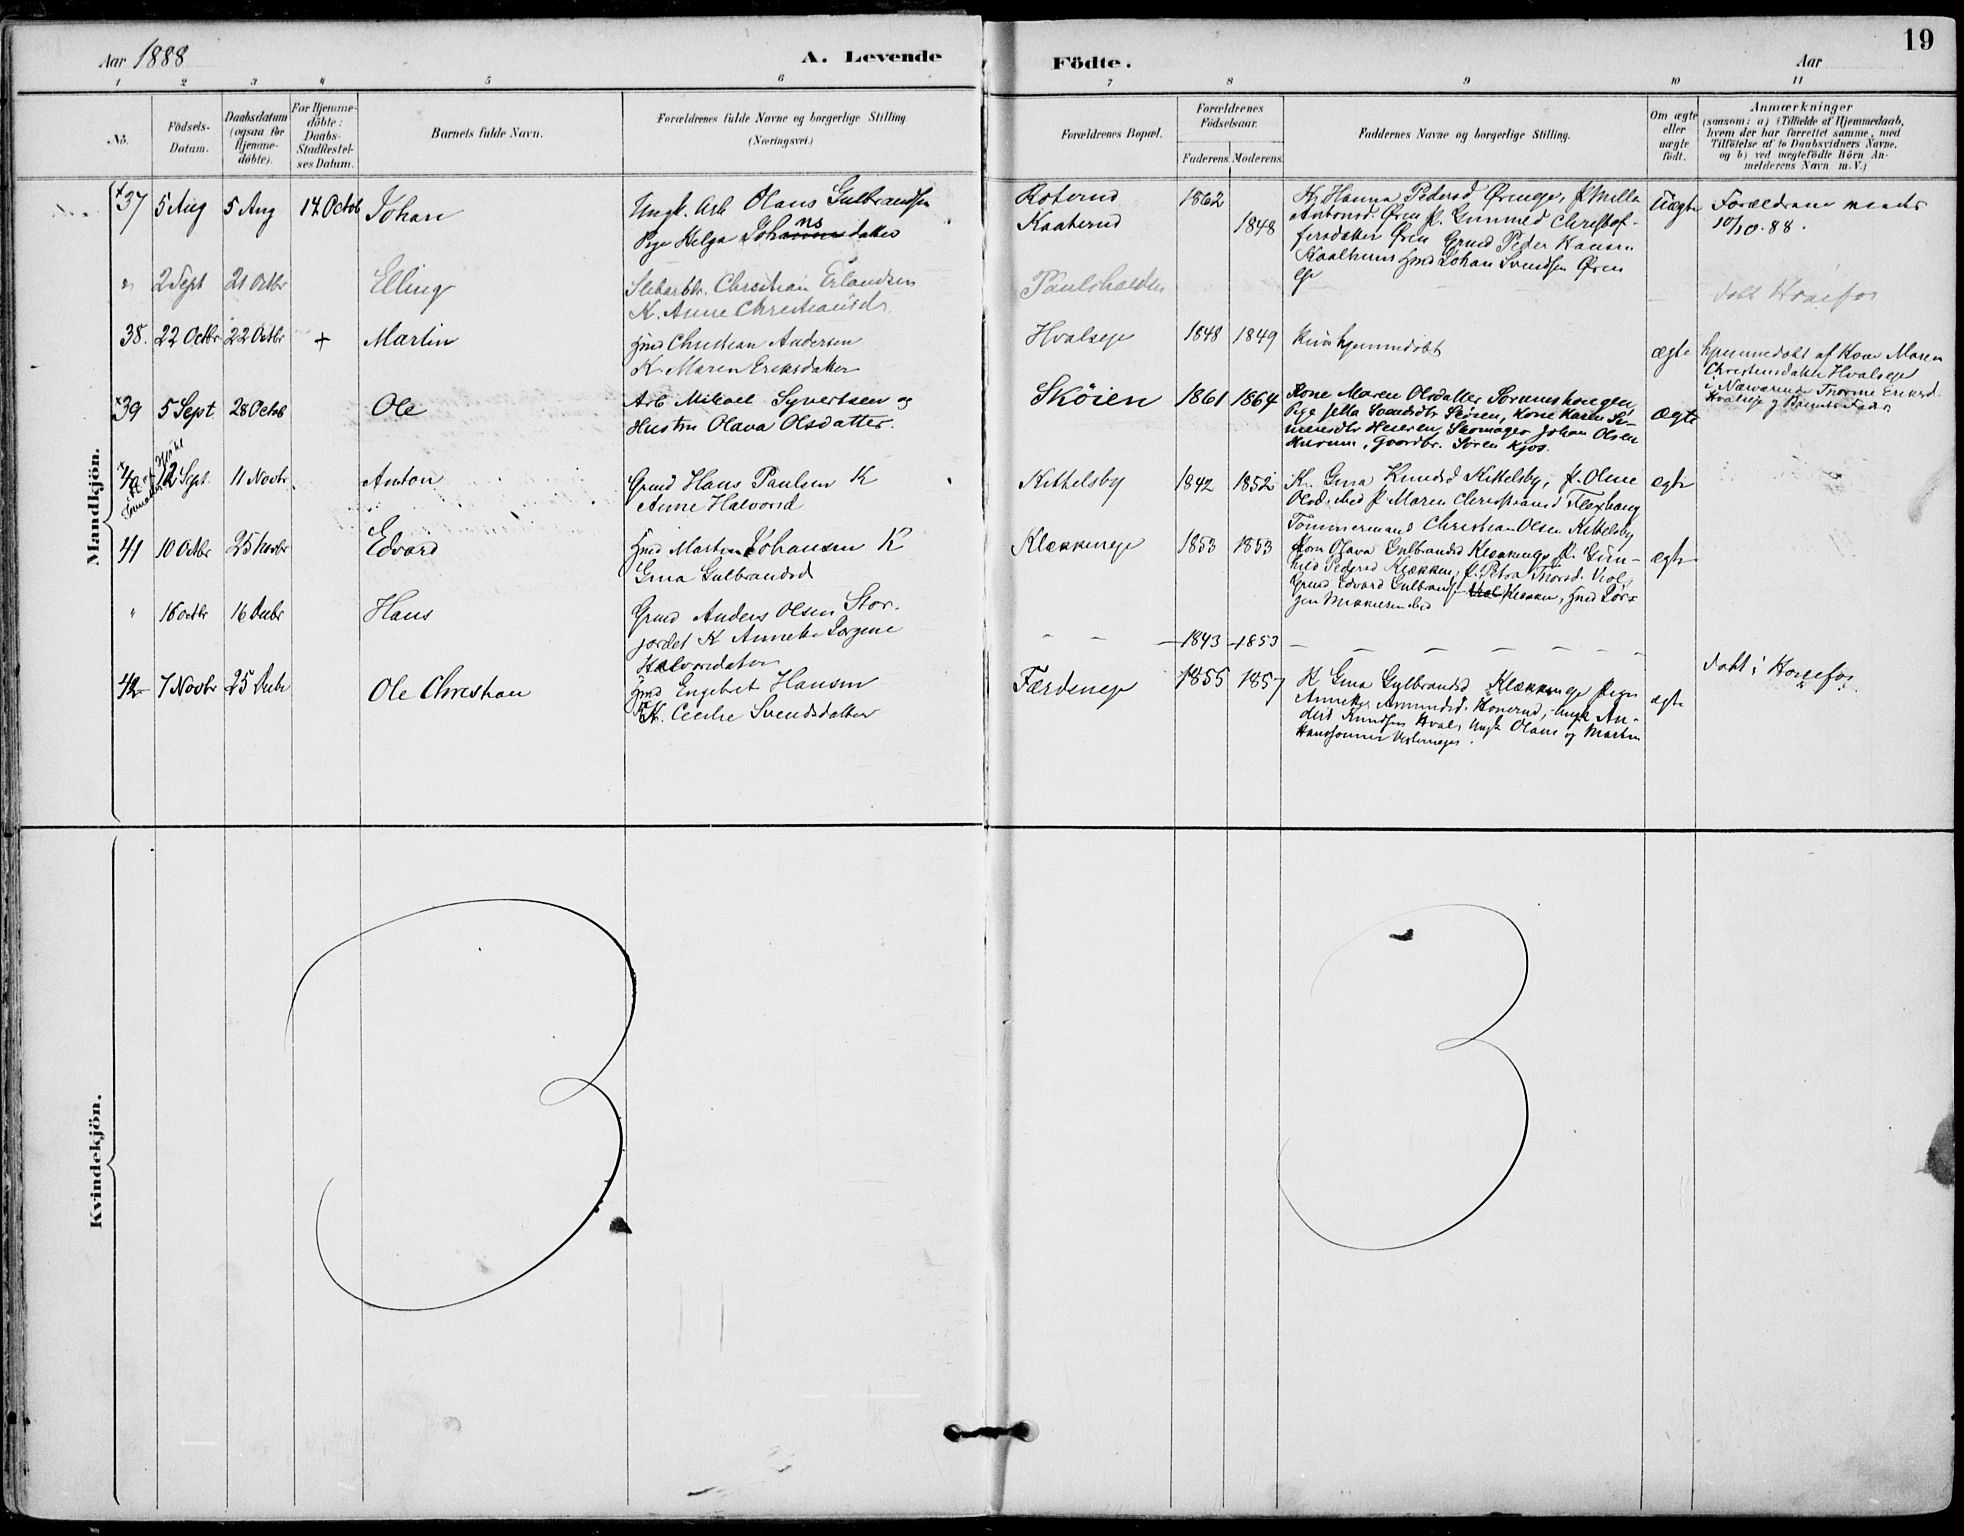 19
Aar 1888
A. Levende
Födte.
Aar
1 2 3 4 5 6 7 8 9 10 11
No.
Födsels-
Datum.
Daabsdatum
(ogsaa for
Hjemme-
döbte).
For Hjemme-
döbte:
Daabs-
Stadfæstel-
ses Datum.
Barnets fulde Navn.
Forældrenes fulde Navne og borgerlige Stilling
(Næringsvei.)
Forældrenes Bopæl.
Forældrenes
Födselsaar.
Faderens. Moderens.
Faddernes Navne og borgerlige Stilling.
Om ægte
eller
uægte
födt.
Anmærkninger
(saasom: a) i Tilfælde af Hjemmedaab,
hvem der har forrettet samme, med
Tilföielse af to Daabsvidners Navne,
og b) ved uægtefödte Börn An-
melderens Navn m.V.)
Mandkjön.
37 5 Aug 5 Aug 14 Octob Johan
Ungk. Arb Olaus Gulbrandsen
Pige Helga Johannsdatter
Roterud
Kaaterud
1862
1848
Kj Hanna Pedersd Øreneje, P. Milla
Antonsd. Øren P. Gunnild Christof-
fersdatter Øren Grmd Peder Hansen
Hmd Johan Svendsen Øren
eje
Uægte
Forældrene
10/10.88.
" 2 Sept 21 Octbr Elling
Christian Erlandsen
K. Anne Christiansd.
Paulshalden
døbt Hønefos
38. 22 Octbr 22 Octbr + Martin
Hmd Christian Andersen
K. Maren Eriksdatter
Hvalseje
1848 1849
Kun hjemmedøbt
ægte
hjemmedøbt af Kone Maren
Christensdatter Hvalseje
i Nærværelse Thorine Eriksd.
Hvalseje og Barnets Fader
39 5 Sept 28 Octob Ole
Arb. Mikael Syvertsen og
Hustru Olava Olsdatter.
Skøien
1861 1864
Kone Maren Olsdatter Sørumshougen,
Pige Jella Svendsdtr Skøien, Kone Karen Si-
mensdtr Heieren, Skomager Johan Olsen
Hurum, Gaardbr. Søren Kjos.
Ægte
40 12 Sept. 11 Novbr. Anton
Grmd Hans Paulsen K
Anne Halvorsd
Kittelsby
1842 1852
K. Gina Knudsd Kittelsby, P. Oline
Olsd. ibid P. Maren Christiansd Flaxhaug
Tømmermand Christian Olsen Kittelsby
ægte
41 10 Octbr 25 Novbr Edvard
Hmd Martin Johansen K
Gina Gulbrandsd
Klækkeneje
1853 1853
Kone Olava Gulbrandsd Klækkeneje, P. Gun-
hild Pedersd Klækken, P. Petra Thorsd. Viol,
Grmd Edvard Gulbrands Klækken, Hmd Jør-
gen Mikkelsen ibid
ægte
" 16 octbr 16 Decbr Hans
Grmd Anders Olsen Stor-
jordet K Annette Jørgine
Halvorsdatter
1843 1853
42 7 Novbr 25 Decbr Ole Christian
Hmd Engebret Hansen
K. Cecilie Svendsdatter
Færdeneje
1855 1857
K Gina Gulbrandsd Klækkeneje Pigen
Annette Amundsd. Honerud, Ungk An-
ders Knudsen Hval, Ungk Olaus og Martin
Hanssønner
ægte
døbt i Hønefos.
Kvindekjön.